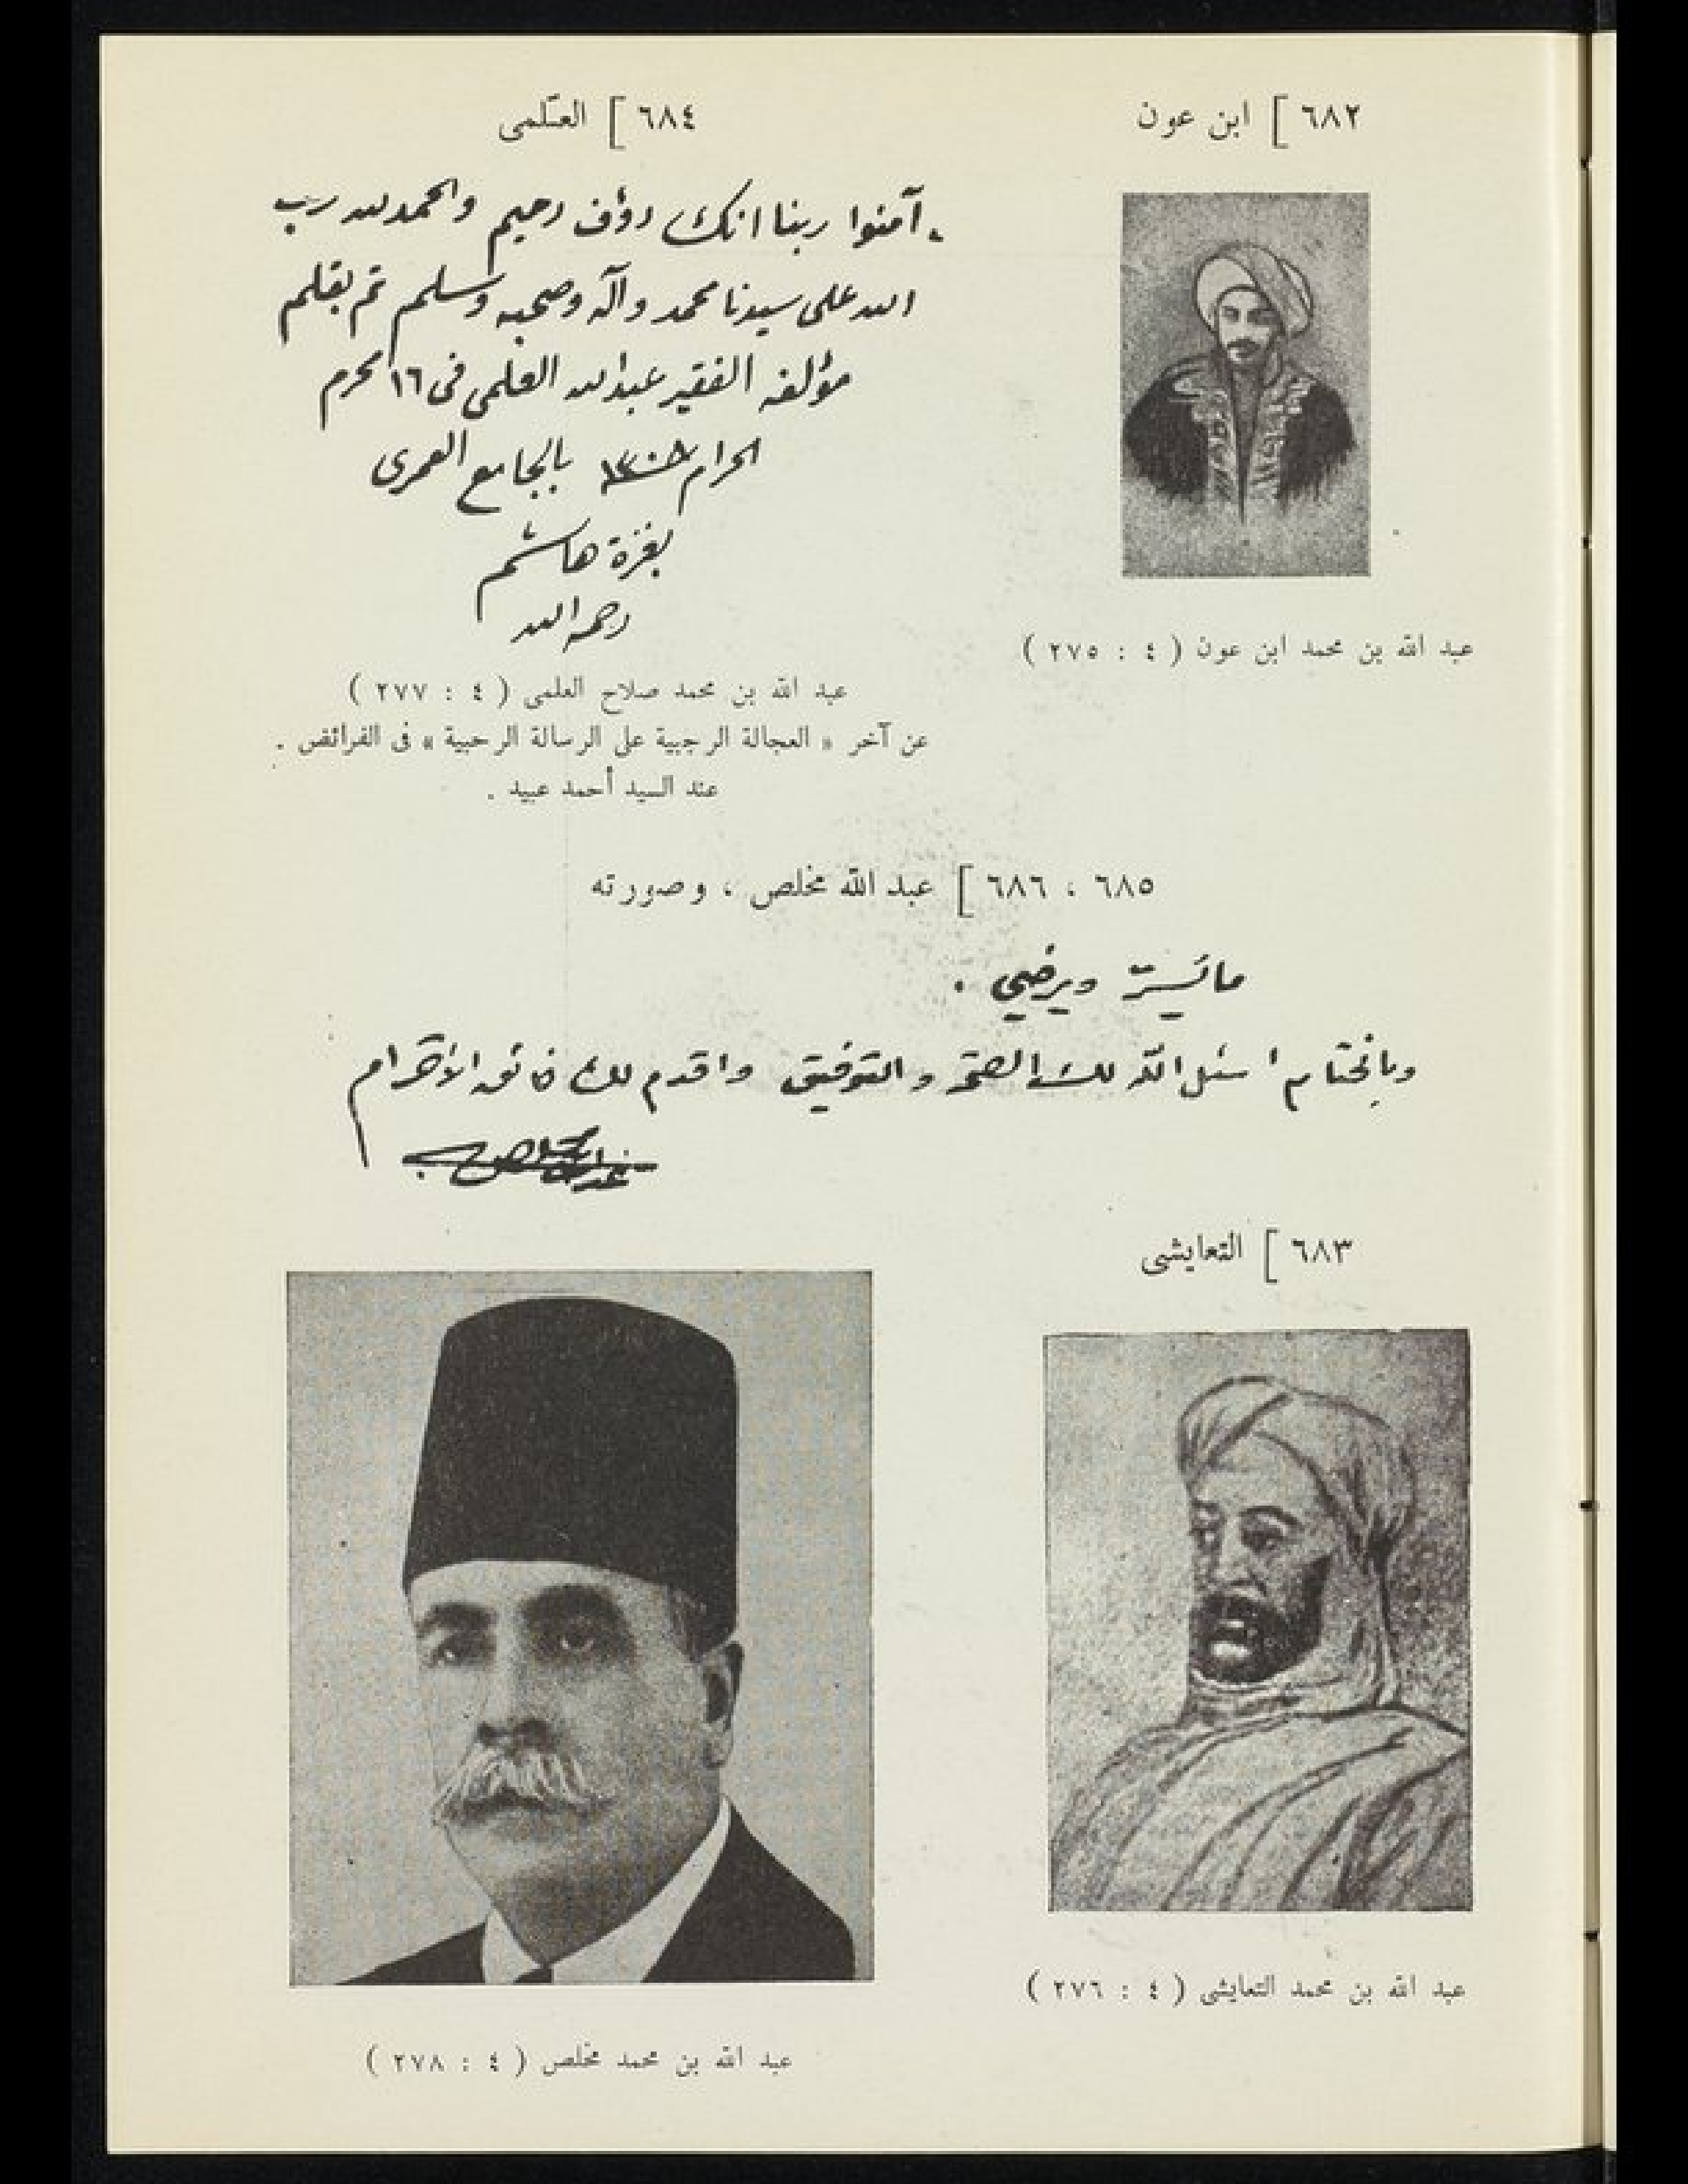 ٦٨٢ ] ابن عون
عبد الله بن محمد ابن عون ( ٤ : ٢٧٥ )
٦٨٤ ] العلمى
آمنوا ربنا انك رؤف رحيم والحمد لله رب
الله على سيدنا محمد وآله وصحبه وسلم تم بقلم
مؤلفه الفقير عبد الله العلمى فى ١٦ محرم
الحرام بالجامع العمرى
بغزة هاشم
رحمه الله
عبد الله بن محمد صلاح العلمى ( ٤ : ٢٧٧ )
عن آخر « العجالة الرجبية على الرسالة الرحبية » فى الفرائض .
عند السيد أحمد عبيد .
٦٨٥ ، ٦٨٦ ] عبد الله مخلص ، وصورته
ما يسرّ ويرضي .
وبالختام اسئل الله لك الصحة والتوفيق واقدم لك فائق الاحترام
عبد الله مخلص
٦٨٣ ] التعايشى
عبد الله بن محمد التعايشى ( ٤ : ٢٧٦ )
عبد الله بن محمد مخلص ( ٤ : ٢٧٨ )